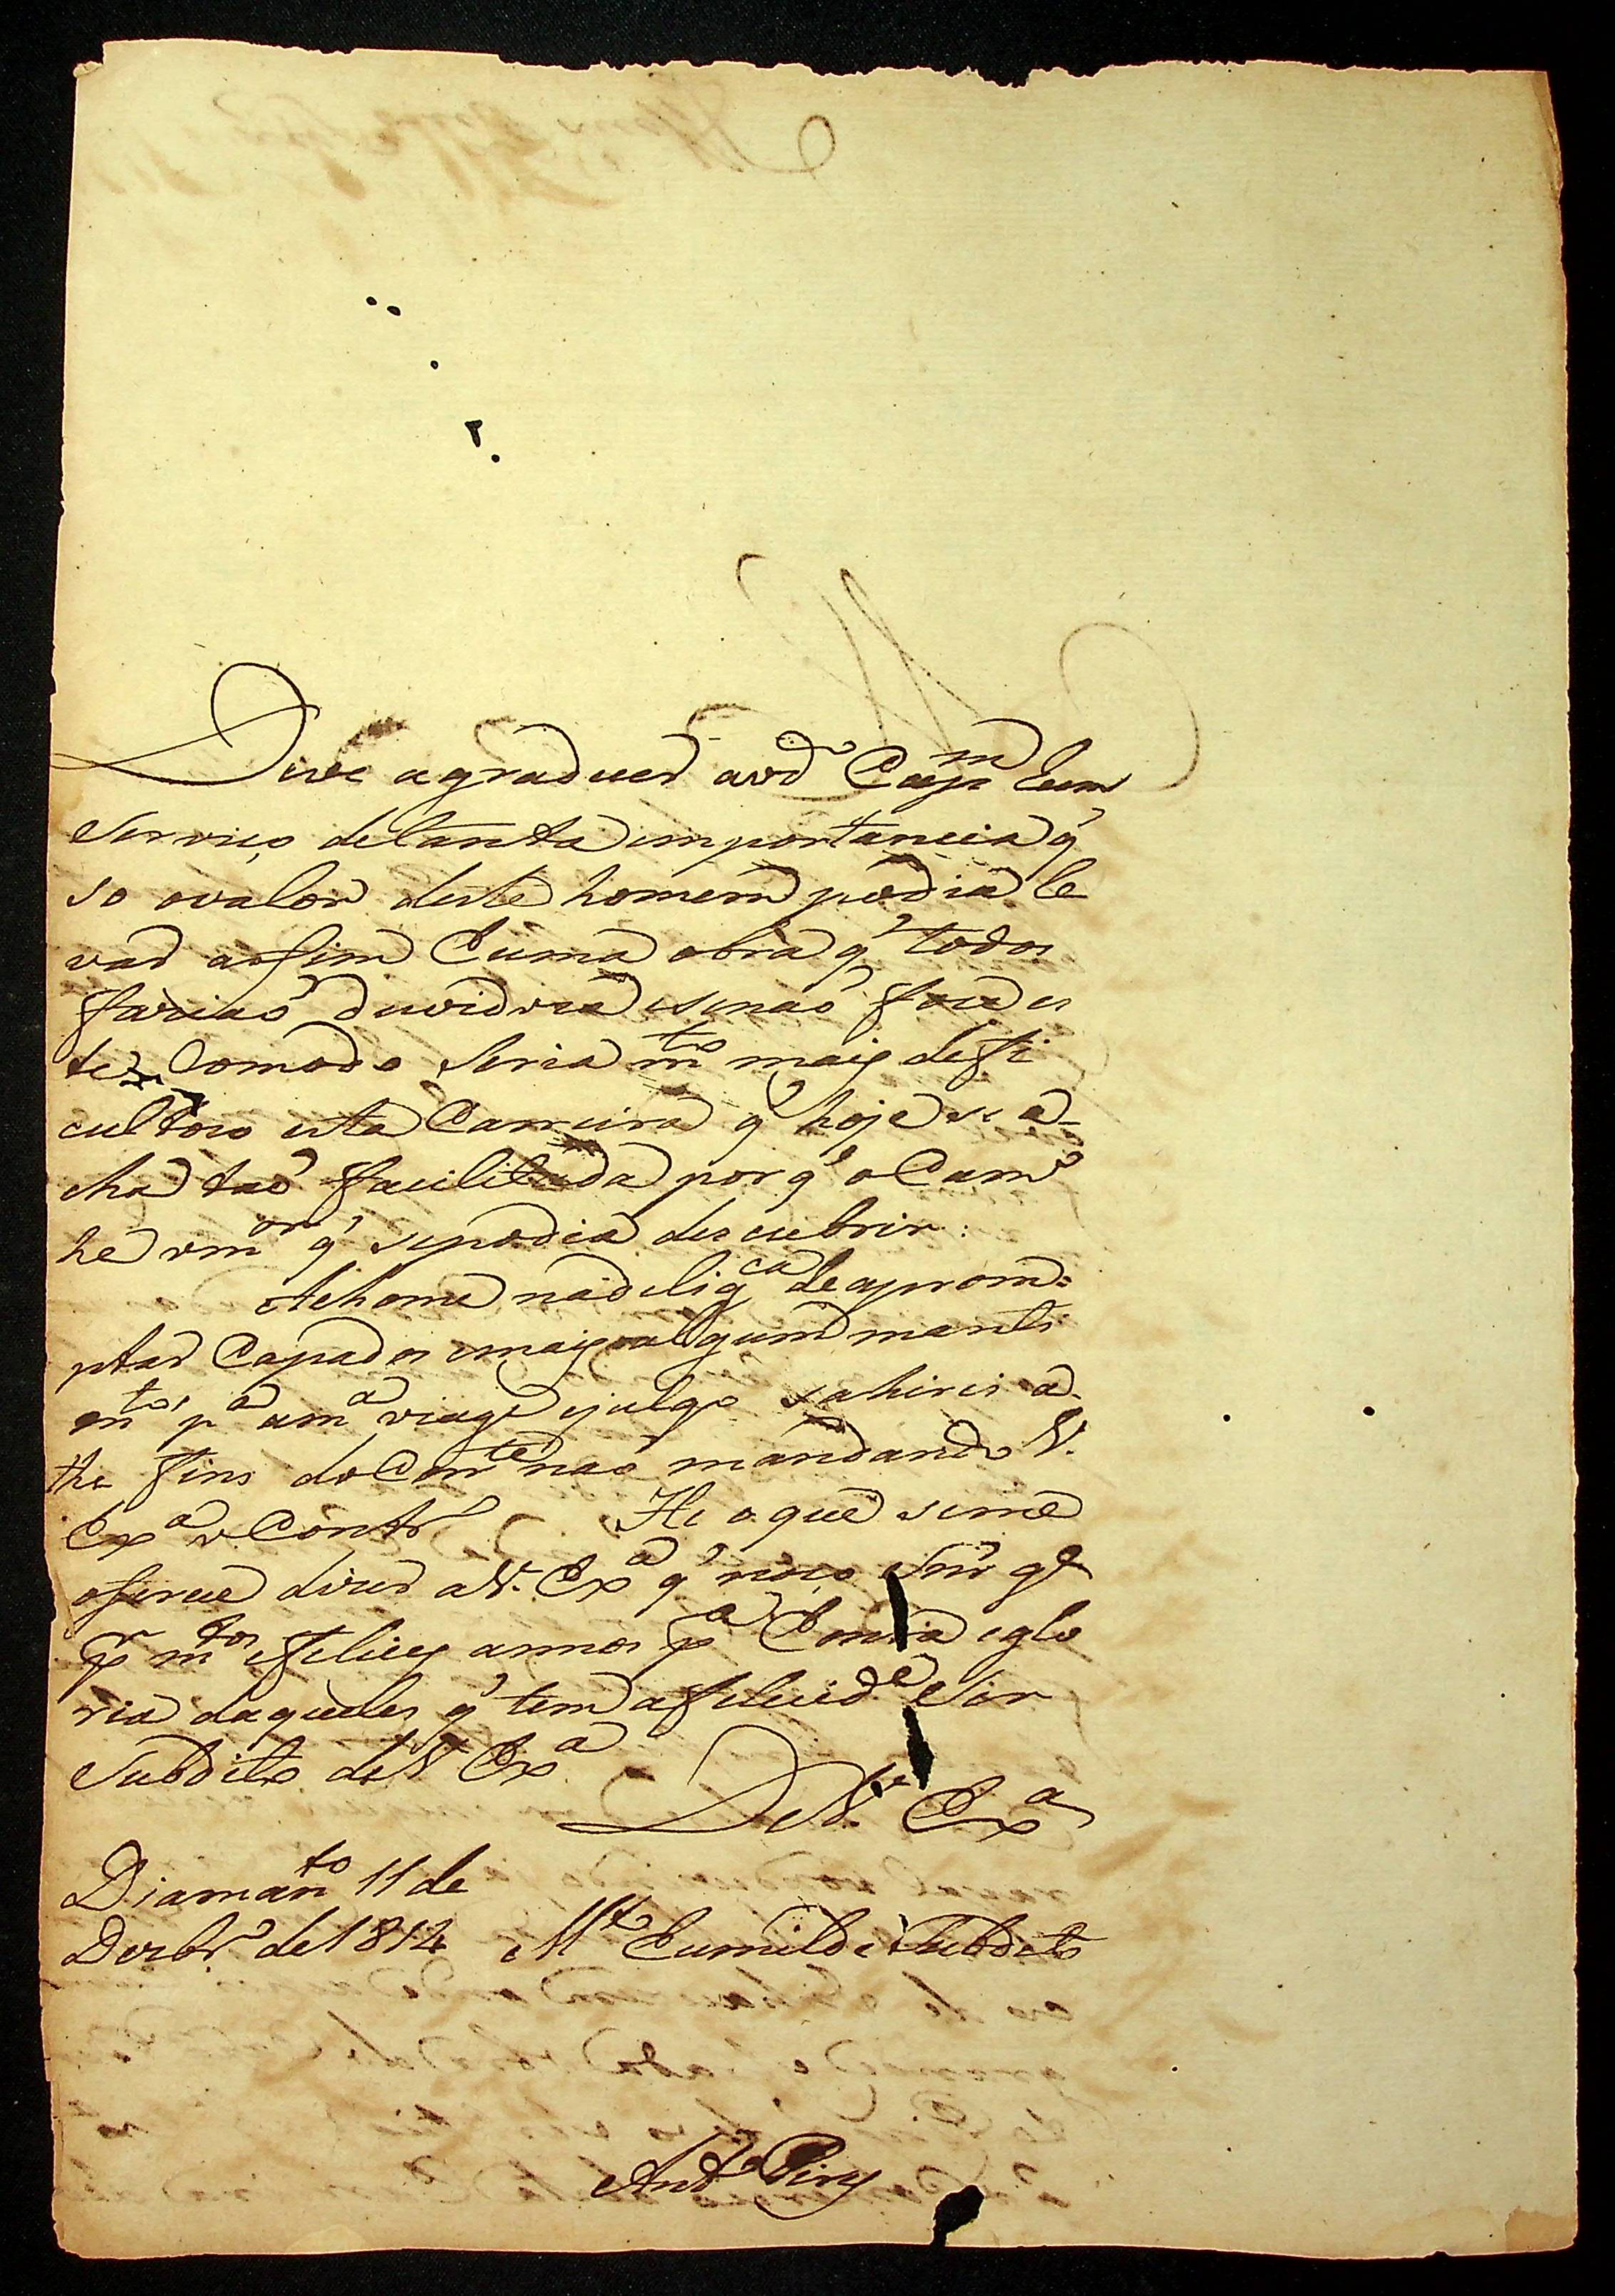 Deve agradecer aod Cap.m hum
Serviço detanta importancia q'
so ovalor deste homem podia le
var aofim huma obra q' todos
fazião duvidoza esenão foce es
te Comodo Seria m.to maiz defi
cultozo esta Carreira q' hoje se a-
cha tão facilitada por q' o Cam.o
he omor q' sepodia descubrir.
Achome nadelig.ca de aprom=
ptar Capados emaiz algum manti
m.tos p.a am.a viage ejulgo sahirei a
the fins do Corr.te não mandando V.
Ex.a o Contr.o He oque seme
oferece dizer aV. Ex.a q' noço Snr g.e
p.r m.tos efelicez annos p.a honra eglo
ria daqueles q' tem afelicid.e Ser
Subdito deV. Ex.a
DeV. Ex.a
Diamant.o 11 de
Dezbr.o de 1812 M.to humilde Subdito
Ant.o Pirz